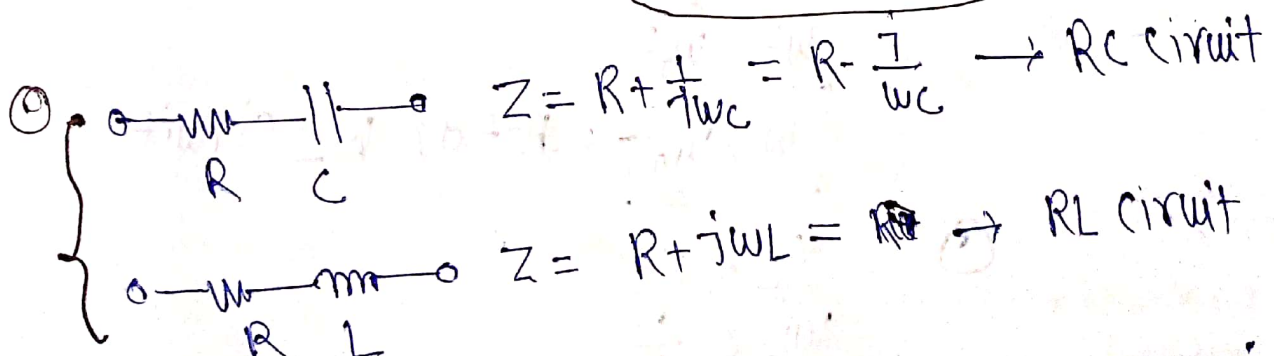 Z = R + 1/jωC = R - j/ωC → RC Ciruit
R C
Z = R + jωL = → RL Ciruit
R L